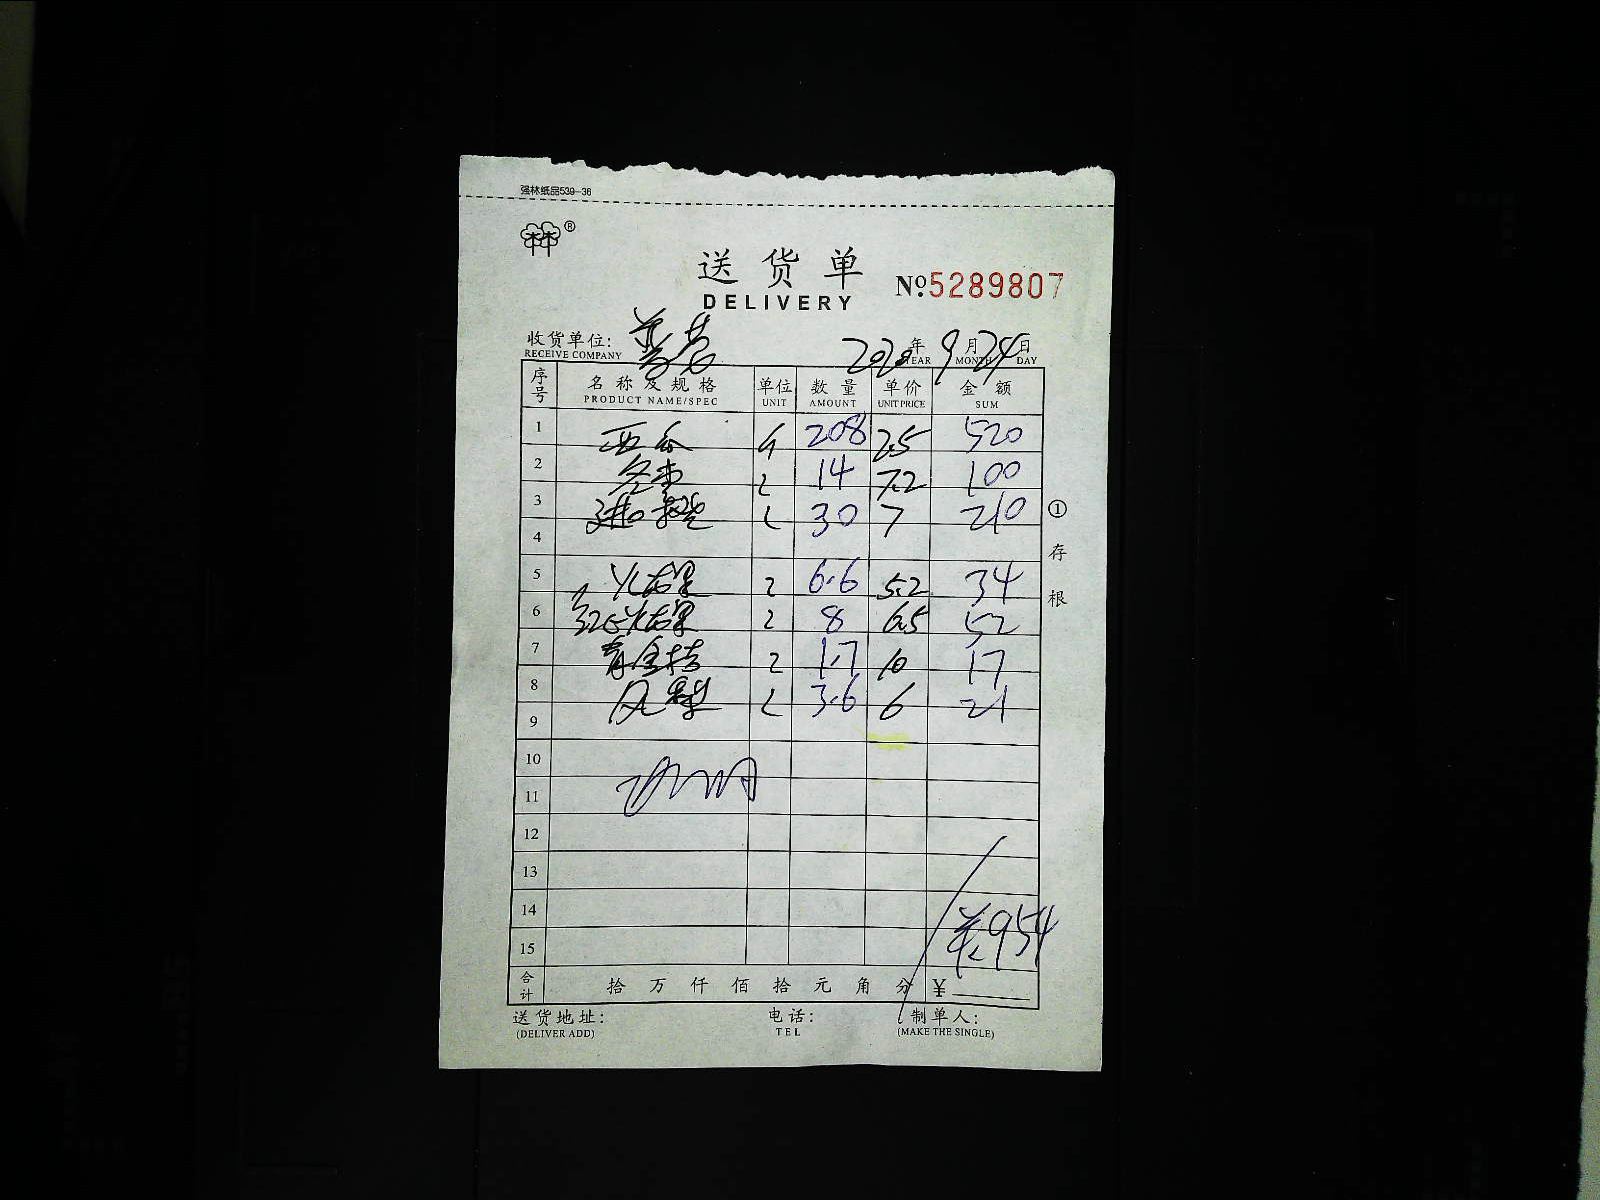 强林纸品539-36
林®
送货单 №5289807
DELIVERY
收货单位: 2020年9月24日
RECEIVE COMPANY YEAR MONTH DAY
序号 名称及规格 单位 数量 单价 金额
PRODUCT NAME/SPEC UNIT AMOUNT UNIT PRICE SUM
1 西瓜 208 2.5 520
2 冬枣 14 7.2 100
3 进口 30 7 210
4
5 火龙果 6.6 5.2 34
6 红心火龙果 8 6.5 52
7 青金桔 1.7 10 17
8 3.6 6 21
9
10
11
12
13
14 ¥:954
15
合计 拾万仟佰拾元角分 ¥
送货地址: 电话: 制单人:
(DELIVER ADD) TEL (MAKE THE SINGLE)
①存根